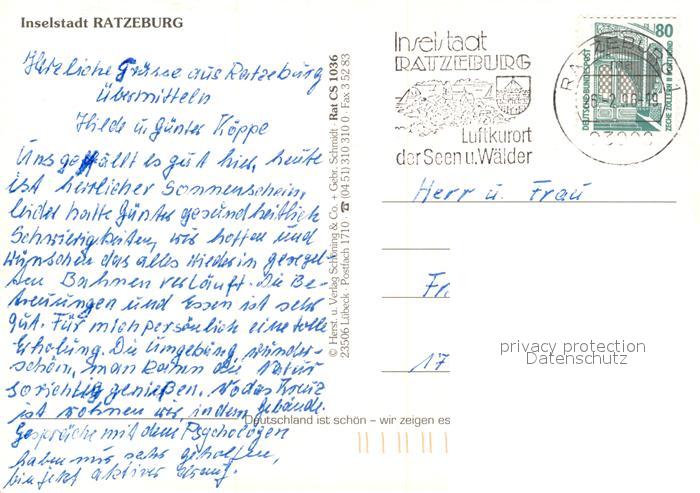 Inselstadt RATZEBURG
Herzliche Grüsse aus Ratzeburg
übermitteln
Hilde u. Günter Köppe
Uns gefällt es gut hier, heute
ist herrlicher Sonnenschein,
leider hatte Günter gesundheitlich
Schwierigkeiten, wir hoffen und
wünschen das alles wieder in geregel-
ten Bahnen verläuft. Die Be-
treuungen und Essen ist sehr
gut. Für mich persönlich eine tolle
Erholung. Die Umgebung wunder-
schön, man kann die Natur
so richtig genießen. Wo das Kreuz
ist wohnen wir, in dem Gebäude.
Gespräche mit dem Psychologen
haben mir sehr geholfen,
bin jetzt aktiver
© Herst. u. Verlag Schöning & Co. + Gebr. Schmidt · Rat CS 1036
23506 Lübeck · Postfach 1710 · ☎ (04 51) 310 310 0 · Fax 3 52 83
Inselstadt
RATZEBURG
Luftkurort
der Seen u. Wälder
RATZEBURG 1
-19
DEUTSCHE BUNDESPOST
80
ZECHE ZOLLERN II DORTMUND
Herr u. Frau
Fr.
17
privacy protection
Datenschutz
Deutschland ist schön – wir zeigen es